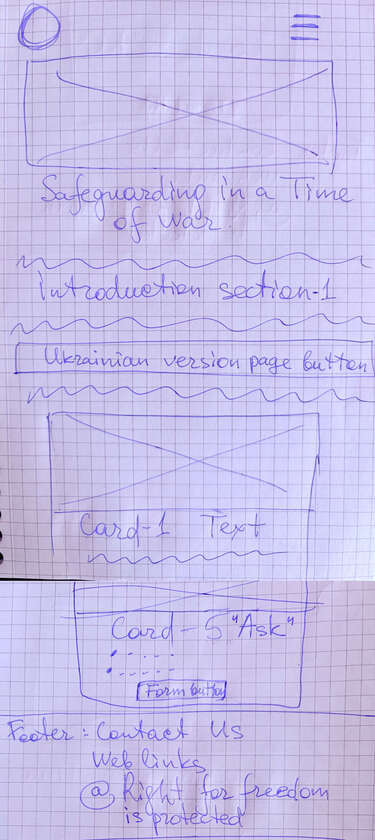 Safeguarding in a Time
of war.
introduction section-1
Ukrainian version page button
Card-1 Text
Card-5 "Ask"
Form button
Footer: Contact Us
Web links
@ Right for freedom
is protected